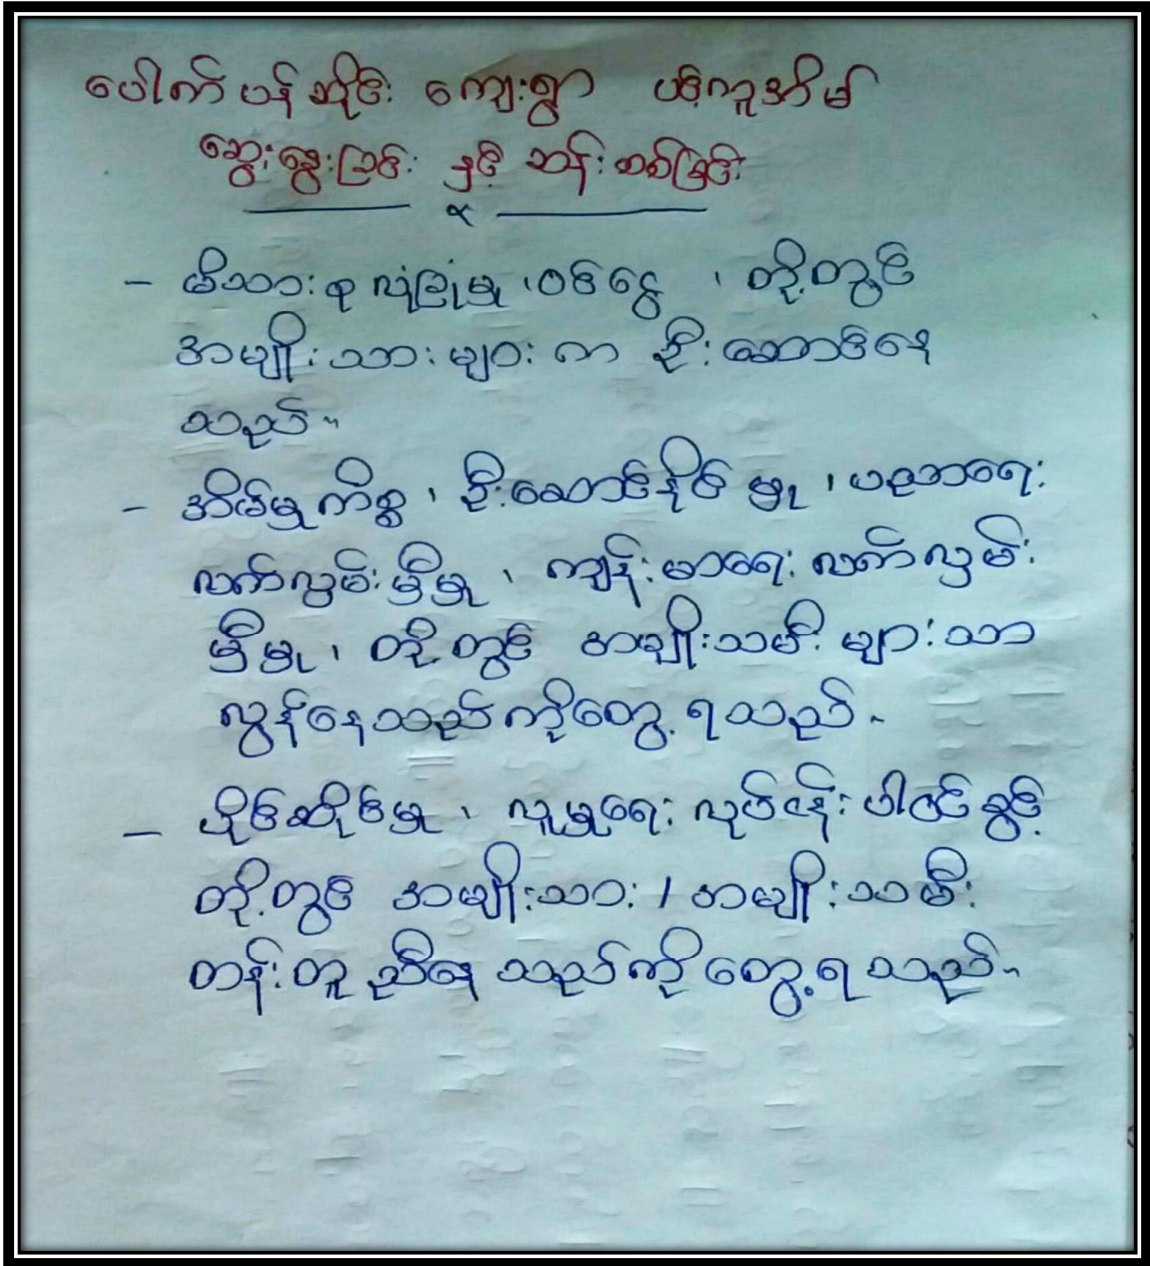 ပေါက်ပန်ဆိုင်း ကျေးရွာ ပဉ္စကူအိမ်
ဆွေးနွေးခြင်း နှင့် ဆန်းစစ်ခြင်း
- မိသားစု လုံခြုံမှု ၊ ဝင်ငွေ ၊ တို့တွင်
အမျိုးသားများ က ဦးဆောင်နေ
သည်။
- အိမ်မှုကိစ္စ ၊ ဦးဆောင်နိုင်မှု ၊ ပညာရေး
လက်လှမ်းမှီမှု ၊ ကျန်းမာရေး လက်လှမ်း
မှီမှု ၊ တို့တွင် အမျိုးသမီး များသာ
လွန်နေသည်ကိုတွေ့ရသည်။
- ပိုင်ဆိုင်မှု ၊ လူမှုရေး လုပ်ငန်း ပါဝင်ခွင့်
တို့တွင် အမျိုးသား / အမျိုးသမီး
တန်းတူညီနေသည်ကို တွေ့ရသည်။